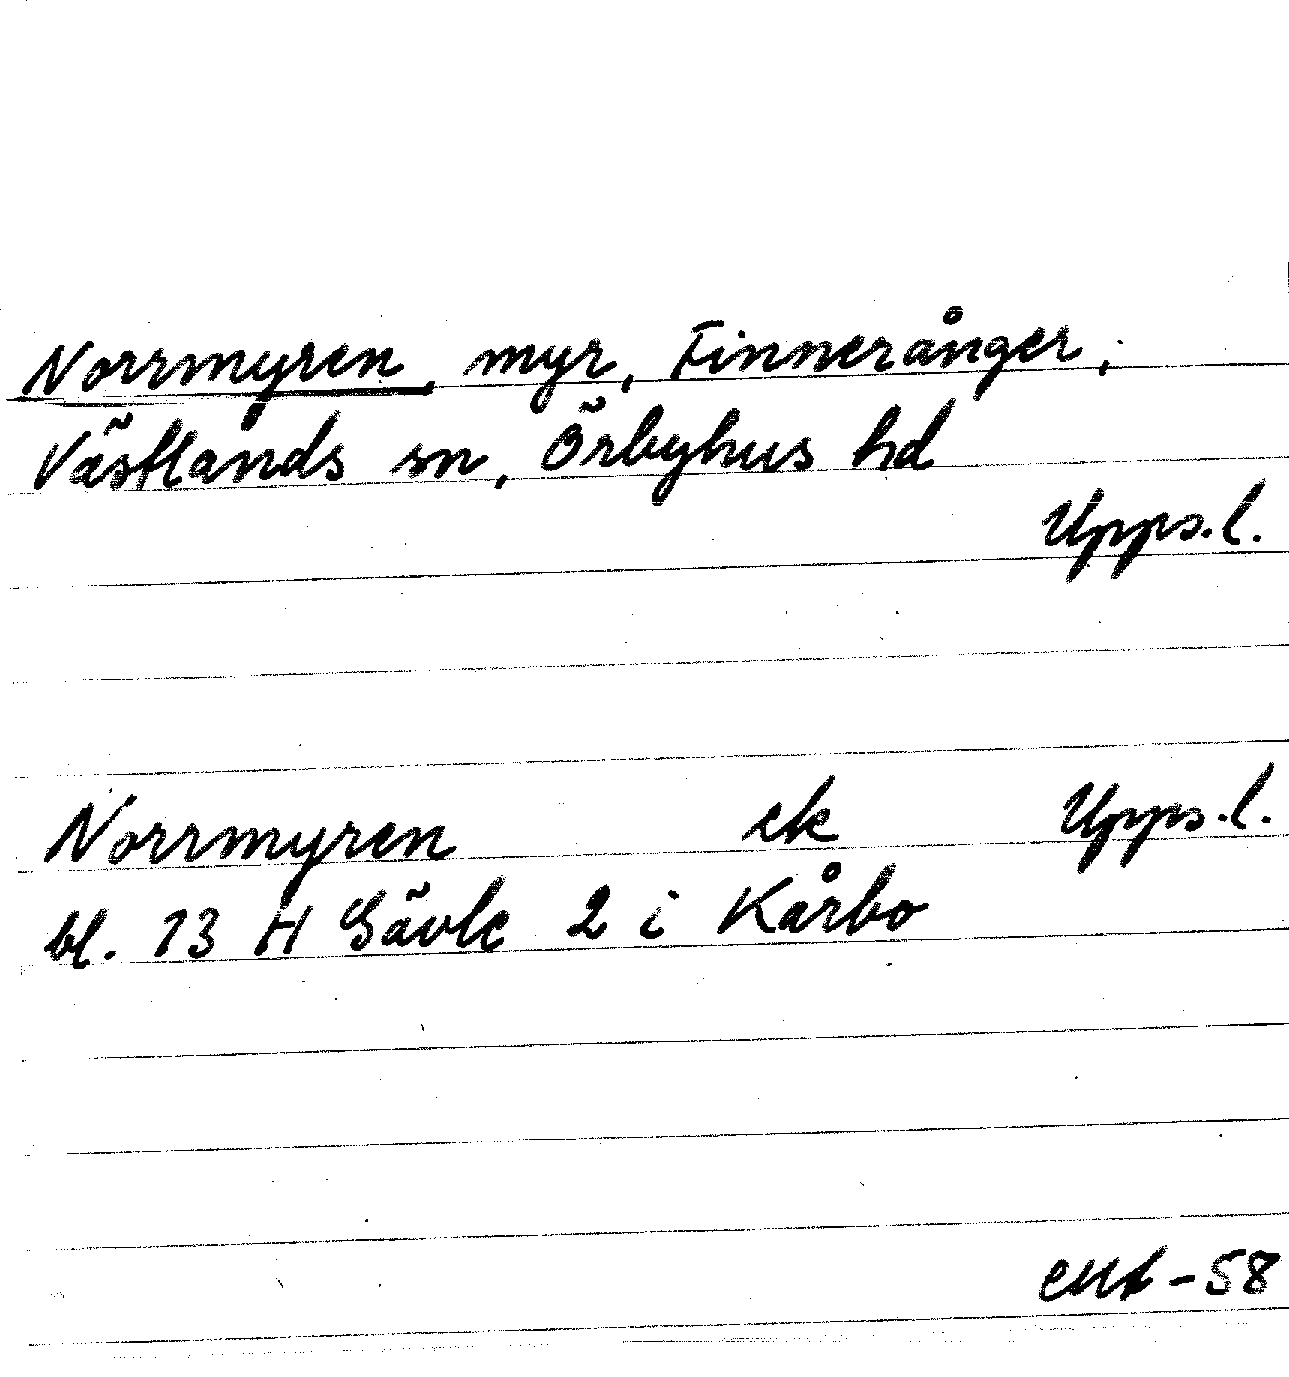 Norrmyren, myr, Finneränger,
Västlands sn, Örbyhus hd
Upps.l.
Norrmyren ek Upps.l.
bl. 13 H Gävle 2 i Kårbo
-58